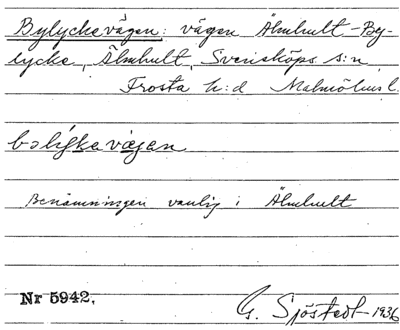 Bylyckevägen: vägen Älmhult-By-
lycke, Älmhult, Svensköps s:n
Frosta h:d Malmöhus l.
bəlýkəvægən
Benämningen vanlig i Älmhult
Nr 5942. G. Sjöstedt 1936